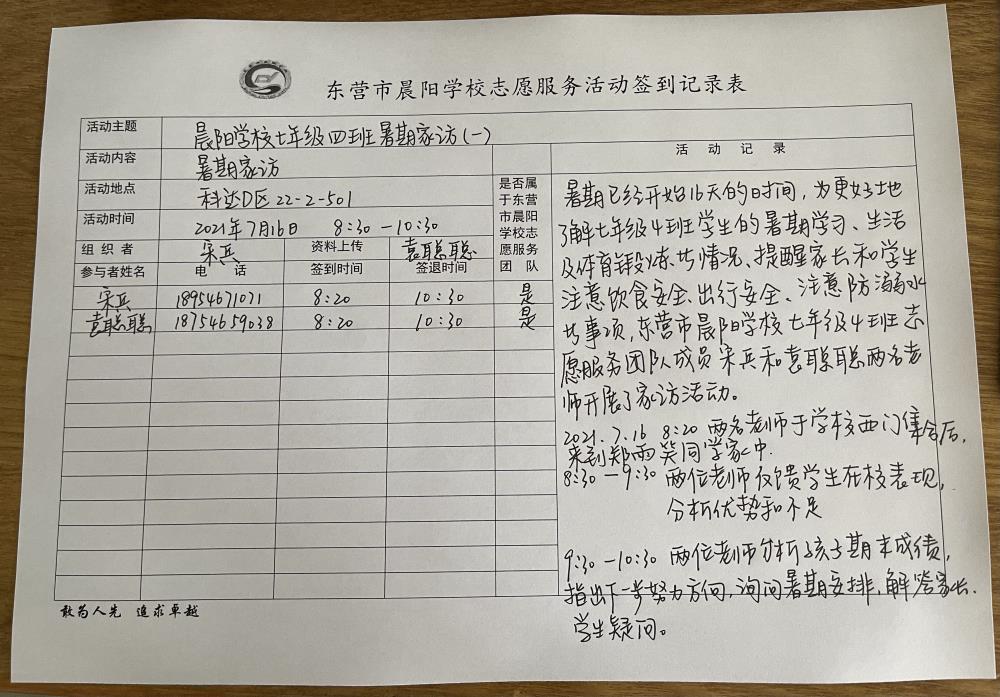 东营市晨阳学校志愿服务活动签到记录表
活动主题 晨阳学校七年级四班暑期家访(一)
活动内容 暑期家访
活动地点 科达D区22-2-501
活动时间 2021年7月16日 8:30-10:30
组织者 宋兵 资料上传 袁聪聪
参与者姓名 电话 签到时间 签退时间
是否属
于东营
市晨阳
学校志
愿服务
团队
宋兵 18954671071 8:20 10:30 是
袁聪聪 18754659038 8:20 10:30 是
活动记录
暑期已经开始16天的时间,为更好地
了解七年级4班学生的暑期学习、生活
及体育锻炼等情况、提醒家长和学生
注意饮食安全、出行安全、注意防溺水
等事项,东营市晨阳学校七年级4班志
愿服务团队成员宋兵和袁聪聪两名老
师开展了家访活动。
2021.7.16 8:20 两名老师于学校西门集合后,
来到郑雨笑同学家中.
8:30-9:30 两位老师反馈学生在校表现,
分析优势和不足
9:30-10:30 两位老师分析孩子期末成绩,
指出下一步努力方向,询问暑期安排,解答家长.
学生疑问。
敢为人先 追求卓越